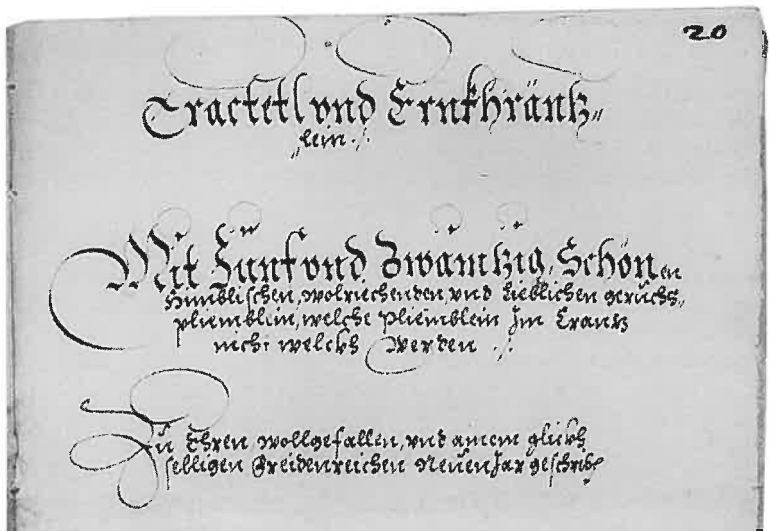 20
Tractetl vnd Ernkhräntz„
„lein ./.
Mit Fünf vnd Zwäintzig, Schönen
Himblischen, wolriechenden, vnd lieblichen geruchs„
pliemblein, welche pliemblein Jm Crantz
nicht welckh werden ./.
Zu Ehren wollgefallen, vnd ainem glickh
seelligen Freidenreichen Neüen Jar geschribe